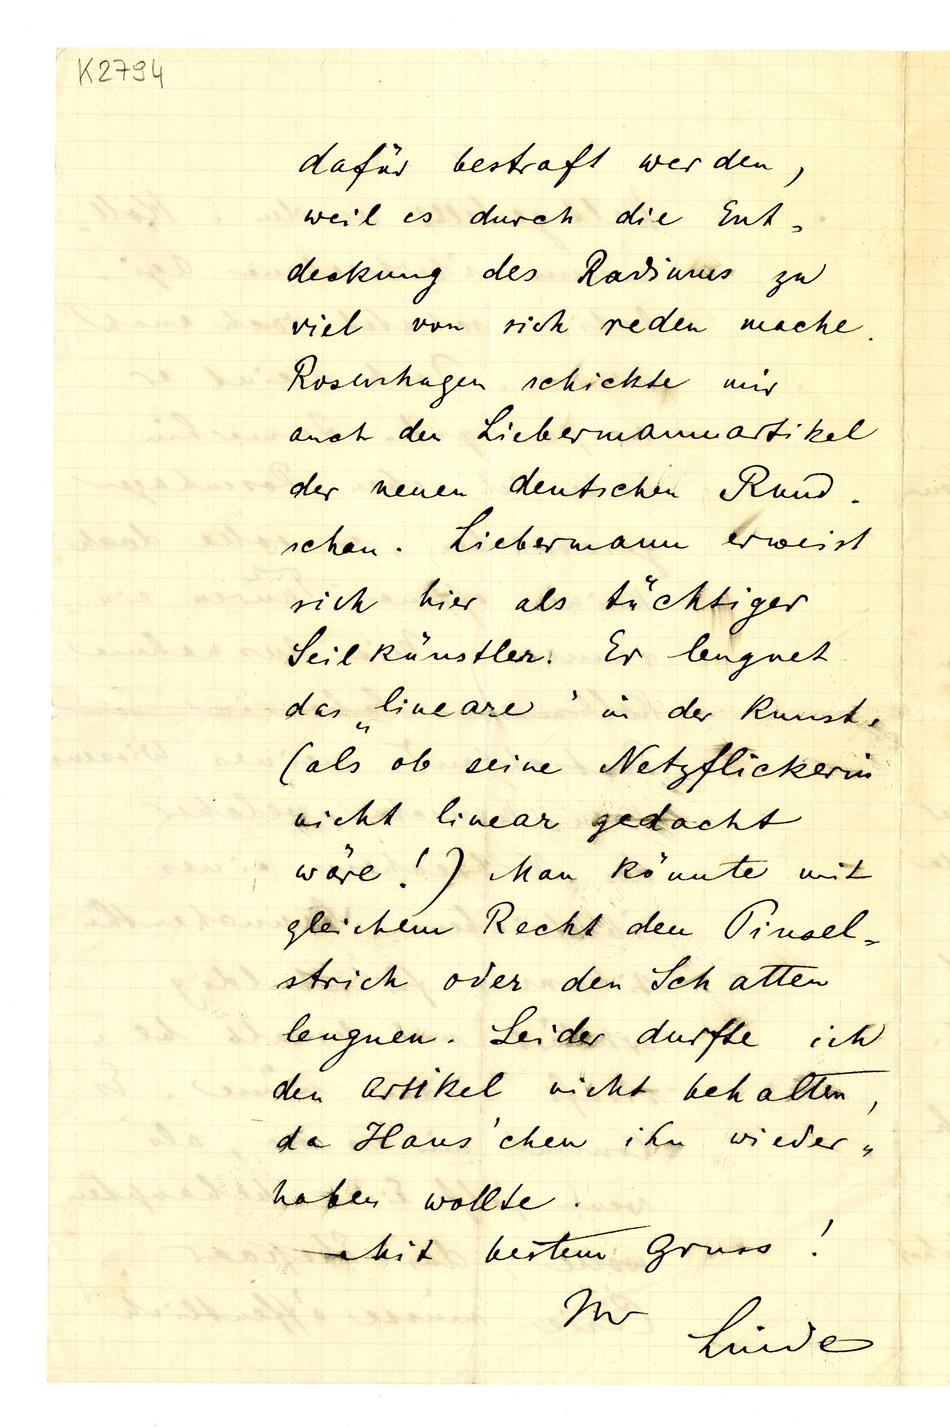 K2794
dafür bestraft werden,
weil es durch die Ent-
deckung des Radiums zu
viel von sich reden mache.
Rosenhagen schickte mir
auch den Liebermannartikel
der neuen deutschen Rund-
schau. Liebermann erweist
sich hier als tüchtiger
Seilkünstler. Er leugnet
das „lineare" in der Kunst.
(als ob seine Netzflickerin
nicht linear gedacht
wäre!) Man könnte mit
gleichem Recht den Pinsel-
strich oder den Schatten
leugnen. Leider durfte ich
den Artikel nicht behalten,
da Hans'chen ihn wieder-
haben wollte.
Mit bestem Gruss!
Ihr
Linde